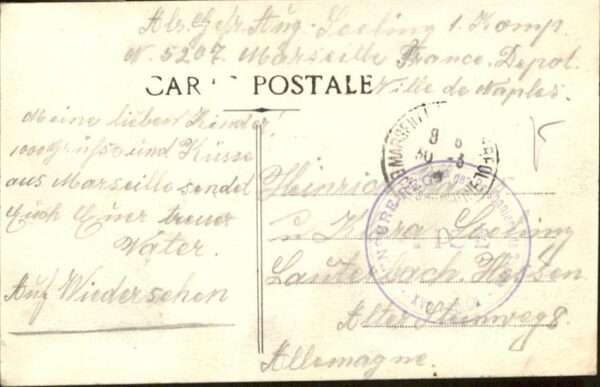 Abs. Gefr. Aug. Seeling 1. Komp.
N. 5207. Marseille France, Depot
Ville de Naples.
CARTE POSTALE
Meine lieben Kinder!
1000 Grüße und Küsse
aus Marseille sendet
Euch Euer treuer
Vater.
Auf Wiedersehen
Heinrich
u Klara Seeling
Lauterbach. Hessen
Alter Steinweg 8.
Allemagne.
MARSEILLE